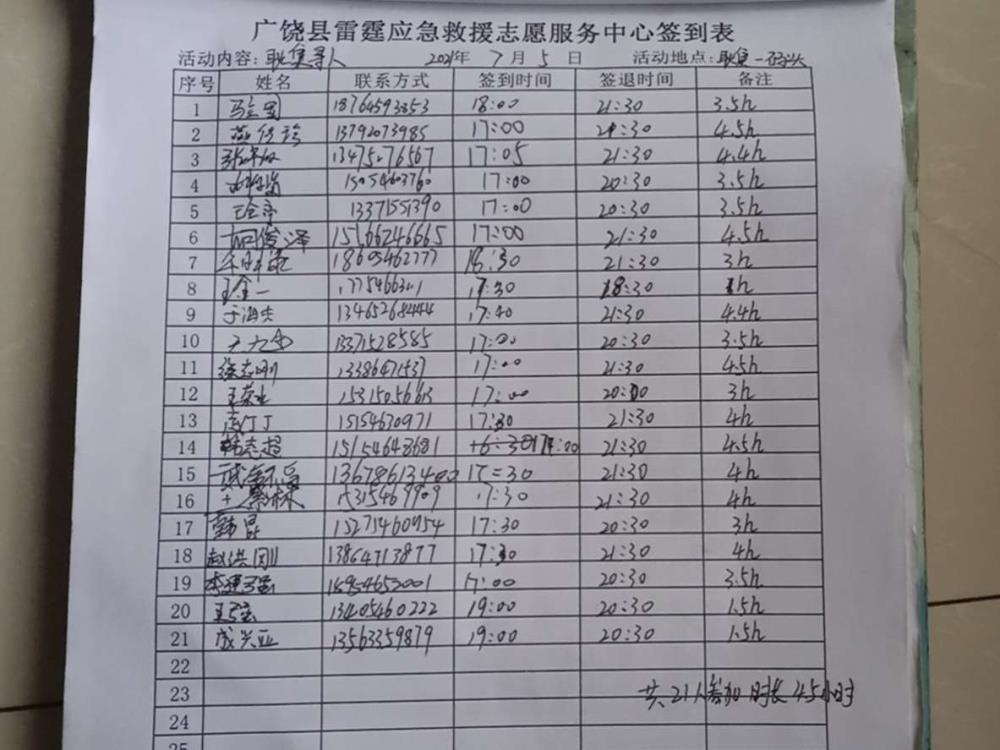 广饶县雷霆应急救援志愿服务中心签到表
活动内容: 耿集寻人 2021年 7月 5日 活动地点: 耿集一码头
序号 姓名 联系方式 签到时间 签退时间 备注
1 18764593853 18:00 21:30 3.5h
2 13792073985 17:00 21:30 4.5h
3 13475276567 17:05 21:30 4.4h
4 15054603760 17:00 20:30 3.5h
5 13371551390 17:00 20:30 3.5h
6 俊泽 15166246665 17:00 21:30 4.5h
7 18605462777 18:30 21:30 3h
8 王金一 17:30 18:30 1h
9 于海杰 13465268444 17:10 21:30 4.4h
10 13371528585 17:00 20:30 3.5h
11 徐志刚 13386471537 17:00 21:30 4.5h
12 15315056663 17:00 20:00 3h
13 15154630971 17:30 21:30 4h
14 韩志超 15154643681 17:00 21:30 4.5h
15 13678613400 17:30 21:30 4h
16 15315469909 17:30 21:30 4h
17 韩昆 15271460954 17:30 20:30 3h
18 赵洪刚 13864713877 17:30 21:30 4h
19 18954652001 17:00 20:30 3.5h
20 13405460222 19:00 20:30 1.5h
21 成兴亚 13563359879 19:00 20:30 1.5h
22
23 共21人参加 时长45小时
24
25